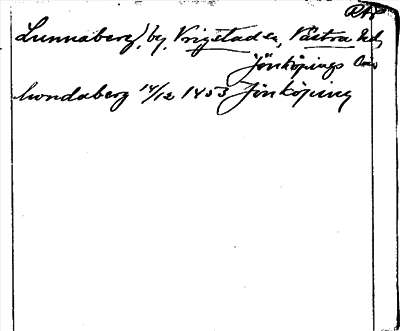 RAP
Lunnaberg, by, Vrigstads sn, Västra hd,
Jönköpings län
Lwndaberg 14/12 1453 Jönköping